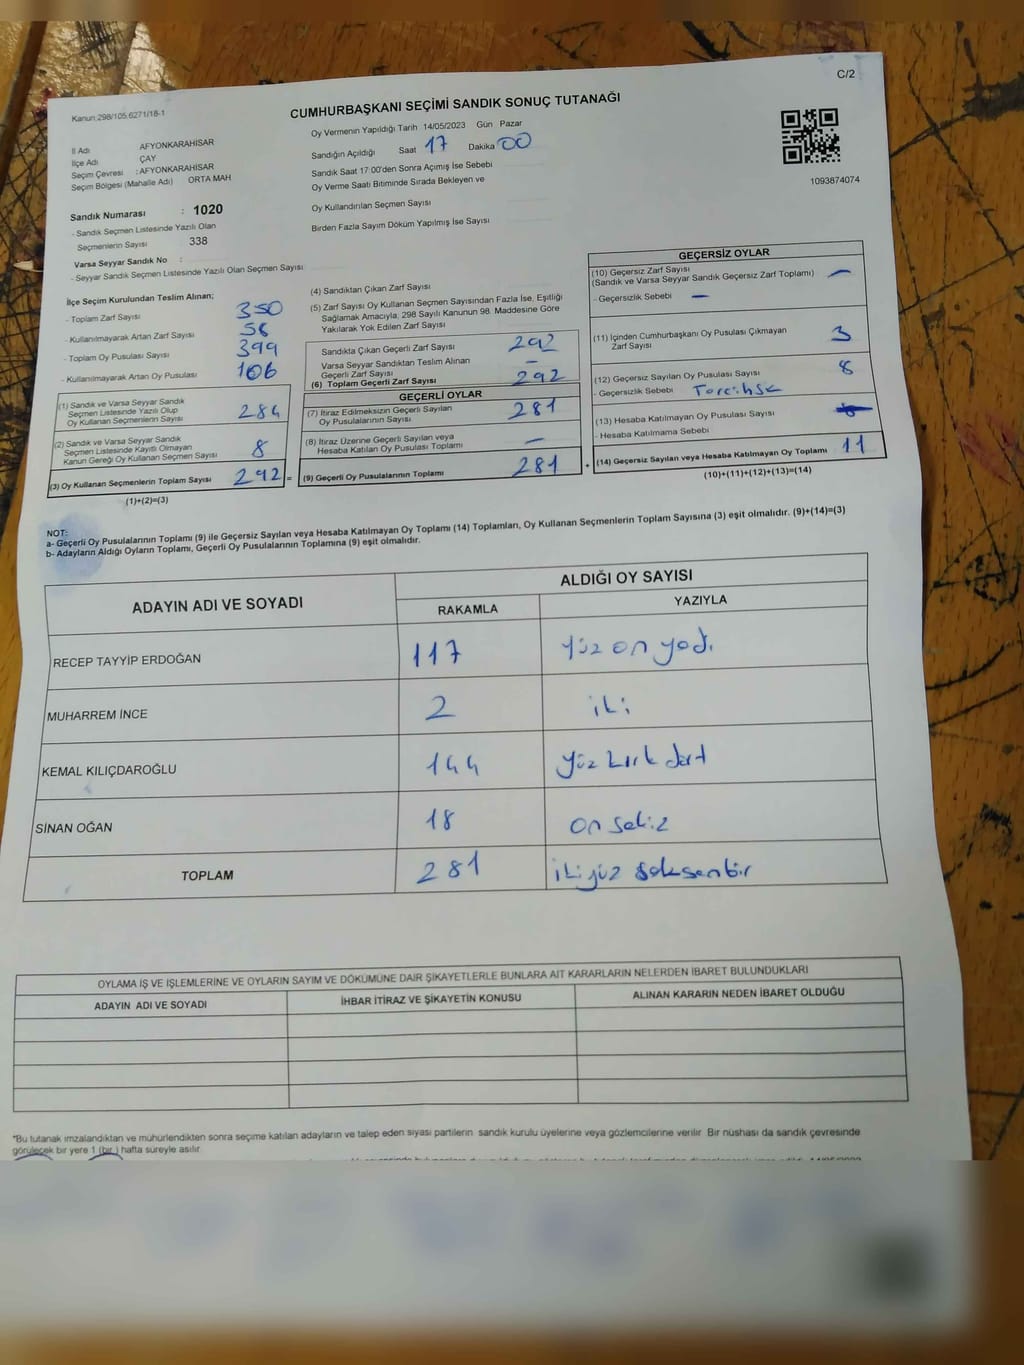 C/2
Kanun:298/105,6271/18-1
CUMHURBAŞKANI SEÇİMİ SANDIK SONUÇ TUTANAĞI
İl Adı AFYONKARAHİSAR
İlçe Adı ÇAY
Seçim Çevresi : AFYONKARAHİSAR
Seçim Bölgesi (Mahalle Adı) ORTA MAH.
Oy Vermenin Yapıldığı Tarih 14/05/2023 Gün Pazar
Sandığın Açıldığı Saat 17 Dakika 00
Sandık Saat 17:00'den Sonra Açımış İse Sebebi
Oy Verme Saati Bitiminde Sırada Bekleyen ve
Oy Kullandırılan Seçmen Sayısı
Birden Fazla Sayım Döküm Yapılmış İse Sayısı
1093874074
Sandık Numarası : 1020
- Sandık Seçmen Listesinde Yazılı Olan
Seçmenlerin Sayısı 338
Varsa Seyyar Sandık No :
- Seyyar Sandık Seçmen Listesinde Yazılı Olan Seçmen Sayısı
İlçe Seçim Kurulundan Teslim Alınan;
- Toplam Zarf Sayısı 350
- Kullanılmayarak Artan Zarf Sayısı 58
- Toplam Oy Pusulası Sayısı 399
- Kullanılmayarak Artan Oy Pusulası 106
(1) Sandık ve Varsa Seyyar Sandık
Seçmen Listesinde Yazılı Olup
Oy Kullanan Seçmenlerin Sayısı 284
(2) Sandık ve Varsa Seyyar Sandık
Seçmen Listesinde Kayıtlı Olmayan
Kanun Gereği Oy Kullanan Seçmen Sayısı 8
(3) Oy Kullanan Seçmenlerin Toplam Sayısı 292 =
(1)+(2)=(3)
(4) Sandıktan Çıkan Zarf Sayısı
(5) Zarf Sayısı Oy Kullanan Seçmen Sayısından Fazla İse, Eşitliği
Sağlamak Amacıyla, 298 Sayılı Kanunun 98. Maddesine Göre
Yakılarak Yok Edilen Zarf Sayısı
Sandıkta Çıkan Geçerli Zarf Sayısı 292
Varsa Seyyar Sandıktan Teslim Alınan
Geçerli Zarf Sayısı –
(6) Toplam Geçerli Zarf Sayısı 292
GEÇERLİ OYLAR
(7) İtiraz Edilmeksizin Geçerli Sayılan
Oy Pusulalarının Sayısı 281
(8) İtiraz Üzerine Geçerli Sayılan veya
Hesaba Katılan Oy Pusulası Toplamı –
(9) Geçerli Oy Pusulalarının Toplamı 281 +
GEÇERSİZ OYLAR
(10) Geçersiz Zarf Sayısı
(Sandık ve Varsa Seyyar Sandık Geçersiz Zarf Toplamı) –
- Geçersizlik Sebebi –
(11) İçinden Cumhurbaşkanı Oy Pusulası Çıkmayan
Zarf Sayısı 3
(12) Geçersiz Sayılan Oy Pusulası Sayısı 8
- Geçersizlik Sebebi
(13) Hesaba Katılmayan Oy Pusulası Sayısı
- Hesaba Katılmama Sebebi
(14) Geçersiz Sayılan veya Hesaba Katılmayan Oy Toplamı 11
(10)+(11)+(12)+(13)=(14)
NOT:
a- Geçerli Oy Pusulalarının Toplamı (9) ile Geçersiz Sayılan veya Hesaba Katılmayan Oy Toplamı (14) Toplamları, Oy Kullanan Seçmenlerin Toplam Sayısına (3) eşit olmalıdır. (9)+(14)=(3)
b- Adayların Aldığı Oyların Toplamı, Geçerli Oy Pusulalarının Toplamına (9) eşit olmalıdır.
ADAYIN ADI VE SOYADI ALDIĞI OY SAYISI
RAKAMLA YAZIYLA
RECEP TAYYİP ERDOĞAN 117 Yüz on yedi
MUHARREM İNCE 2 iki
KEMAL KILIÇDAROĞLU 144 Yüz kırk dört
SİNAN OĞAN 18 on sekiz
TOPLAM 281 ikiyüz seksenbir
OYLAMA İŞ VE İŞLEMLERİNE VE OYLARIN SAYIM VE DÖKÜMÜNE DAİR ŞİKAYETLERLE BUNLARA AİT KARARLARIN NELERDEN İBARET BULUNDUKLARI
ADAYIN ADI VE SOYADI İHBAR İTİRAZ VE ŞİKAYETİN KONUSU ALINAN KARARIN NEDEN İBARET OLDUĞU
*Bu tutanak imzalandıktan ve mühürlendikten sonra seçime katılan adayların ve talep eden siyasi partilerin sandık kurulu üyelerine veya gözlemcilerine verilir. Bir nüshası da sandık çevresinde
görülecek bir yere 1 (bir) hafta süreyle asılır.